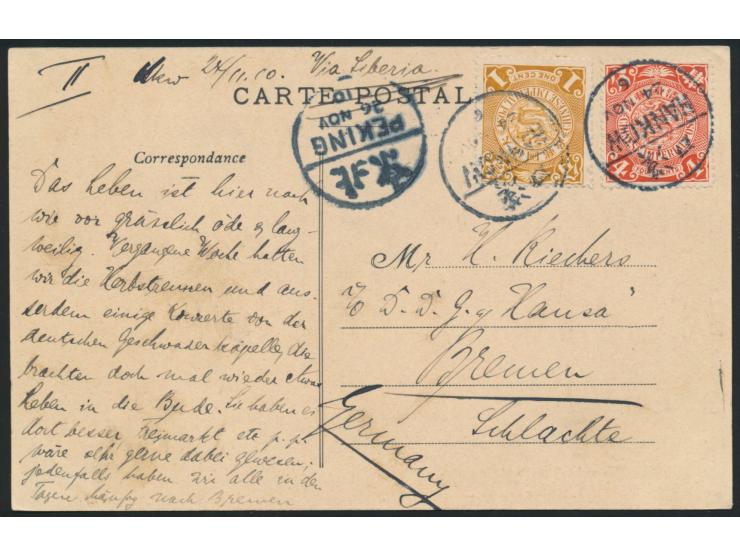 II Hkw 24/11.10. Via Siberia.
CARTE POSTALE
PEKING
26 NOV
10
北京
HANKOW
24 NOV
ONE CENT
1
4
Correspondance
Das Leben ist hier nach
wie vor grässlich öde & lang-
weilig. Vergangene Woche hatten
wir die Herbstrennen und aus-
serdem einige Konzerte von der
deutschen Geschwaderkapelle, die
brachten doch mal wieder etwas
Leben in die Bude. Sie haben es
dort besser, Freimarkt etc p.p.
wäre sehr gerne dabei gewesen;
jedenfalls haben wir alle in den
Tagen häufig nach Bremen
Mr H. Riechers
c/o D. D. G. "Hansa"
Bremen
Schlachte
Germany